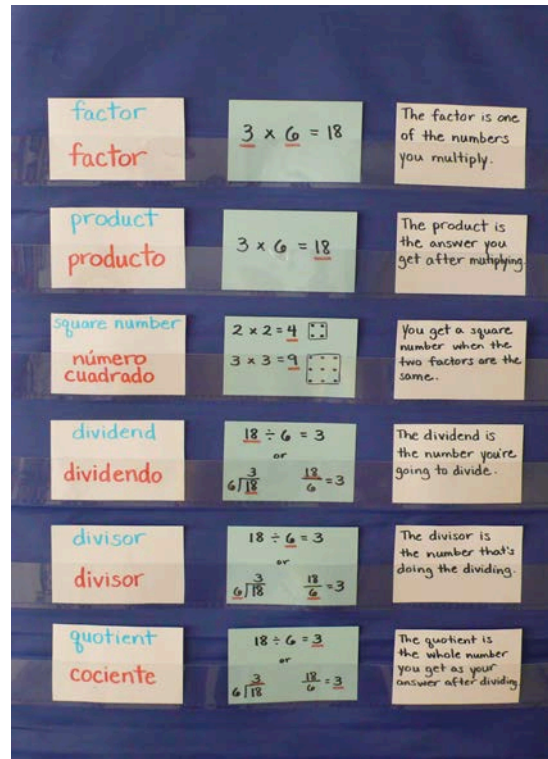 factor
factor
3 × 6 = 18
The factor is one
of the numbers
you multiply.
product
producto
3 × 6 = 18
The product is
the answer you
get after mutiplying.
square number
número
cuadrado
2 × 2 = 4
3 × 3 = 9
You get a square
number when the
two factors are the
same.
dividend
dividendo
18 ÷ 6 = 3
or
3
6)18
18
6 = 3
The dividend is
the number you're
going to divide.
divisor
divisor
18 ÷ 6 = 3
or
3
6)18
18
6 = 3
The divisor is
the number that's
doing the dividing.
quotient
cociente
18 ÷ 6 = 3
or
3
6)18
18
6 = 3
The quotient is
the whole number
you get as your
answer after dividing.